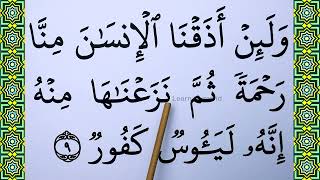 وَلَئِنۡ أَذَقۡنَا ٱلۡإِنسَـٰنَ مِنَّا
رَحۡمَةٗ ثُمَّ نَزَعۡنَـٰهَا مِنۡهُ
إِنَّهُۥ لَيَـُٔوسٞ كَفُورٞ ٩